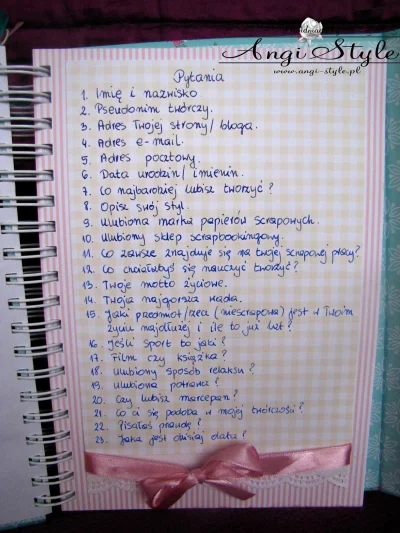 Angi Style
www.angi-style.pl
Pytania
1. Imię i nazwisko
2. Pseudonim twórczy.
3. Adres Twojej strony/bloga.
4. Adres e-mail.
5. Adres pocztowy.
6. Data urodzin/imienin.
7. Co najbardziej lubisz tworzyć?
8. Opisz swój styl.
9. Ulubiona marka papierów scrapowych.
10. Ulubiony sklep scrapbookingowy.
11. Co zawsze znajduje się na twojej scrapowej pracy?
12. Co chciałabyś się nauczyć tworzyć?
13. Twoje motto życiowe.
14. Twoja najgorsza wada.
15. Jaki przedmiot/rzecz (niescrapowa) jest w Twoim
życiu najdłużej i ile to już lat?
16. Jeśli sport to jaki?
17. Film czy książka?
18. Ulubiony sposób relaksu?
19. Ulubiona potrawa?
20. Czy lubisz marcepan?
21. Co ci się podoba w mojej twórczości?
22. Pisałaś prawdę?
23. Jaka jest dzisiaj data?